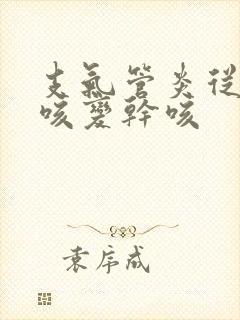 支氣管炎從
咳變幹咳
袁序成